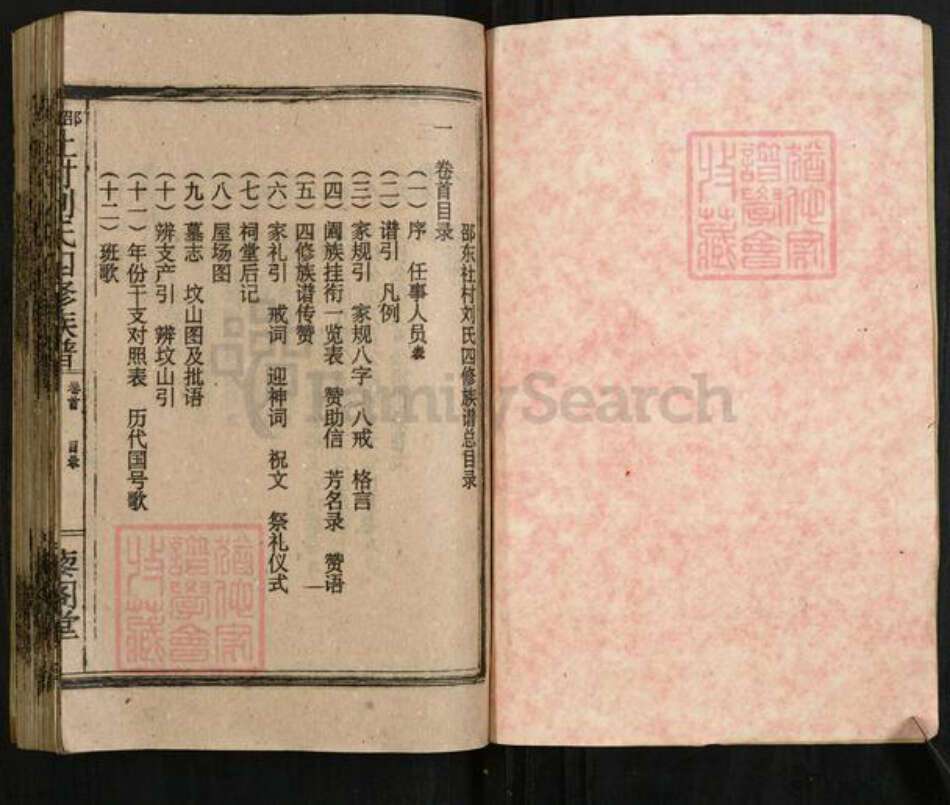 邵东社村刘氏四修族谱总目录
一 卷首目录
(一) 序 任事人员表
(二) 谱引 凡例
(三) 家规引 家规八字 八戒 格言
(四) 阖族挂衔一览表 赞助信 芳名录 赞语
(五) 四修族谱传赞
(六) 家礼引 戒词 迎神词 祝文 祭礼仪式
(七) 祠堂后记
(八) 屋场图
(九) 墓志 坟山图及批语
(十) 辨支产引 辨坟山引
(十一) 年份干支对照表 历代国号歌
(十二) 班歌
卷首 目录
FamilySearch